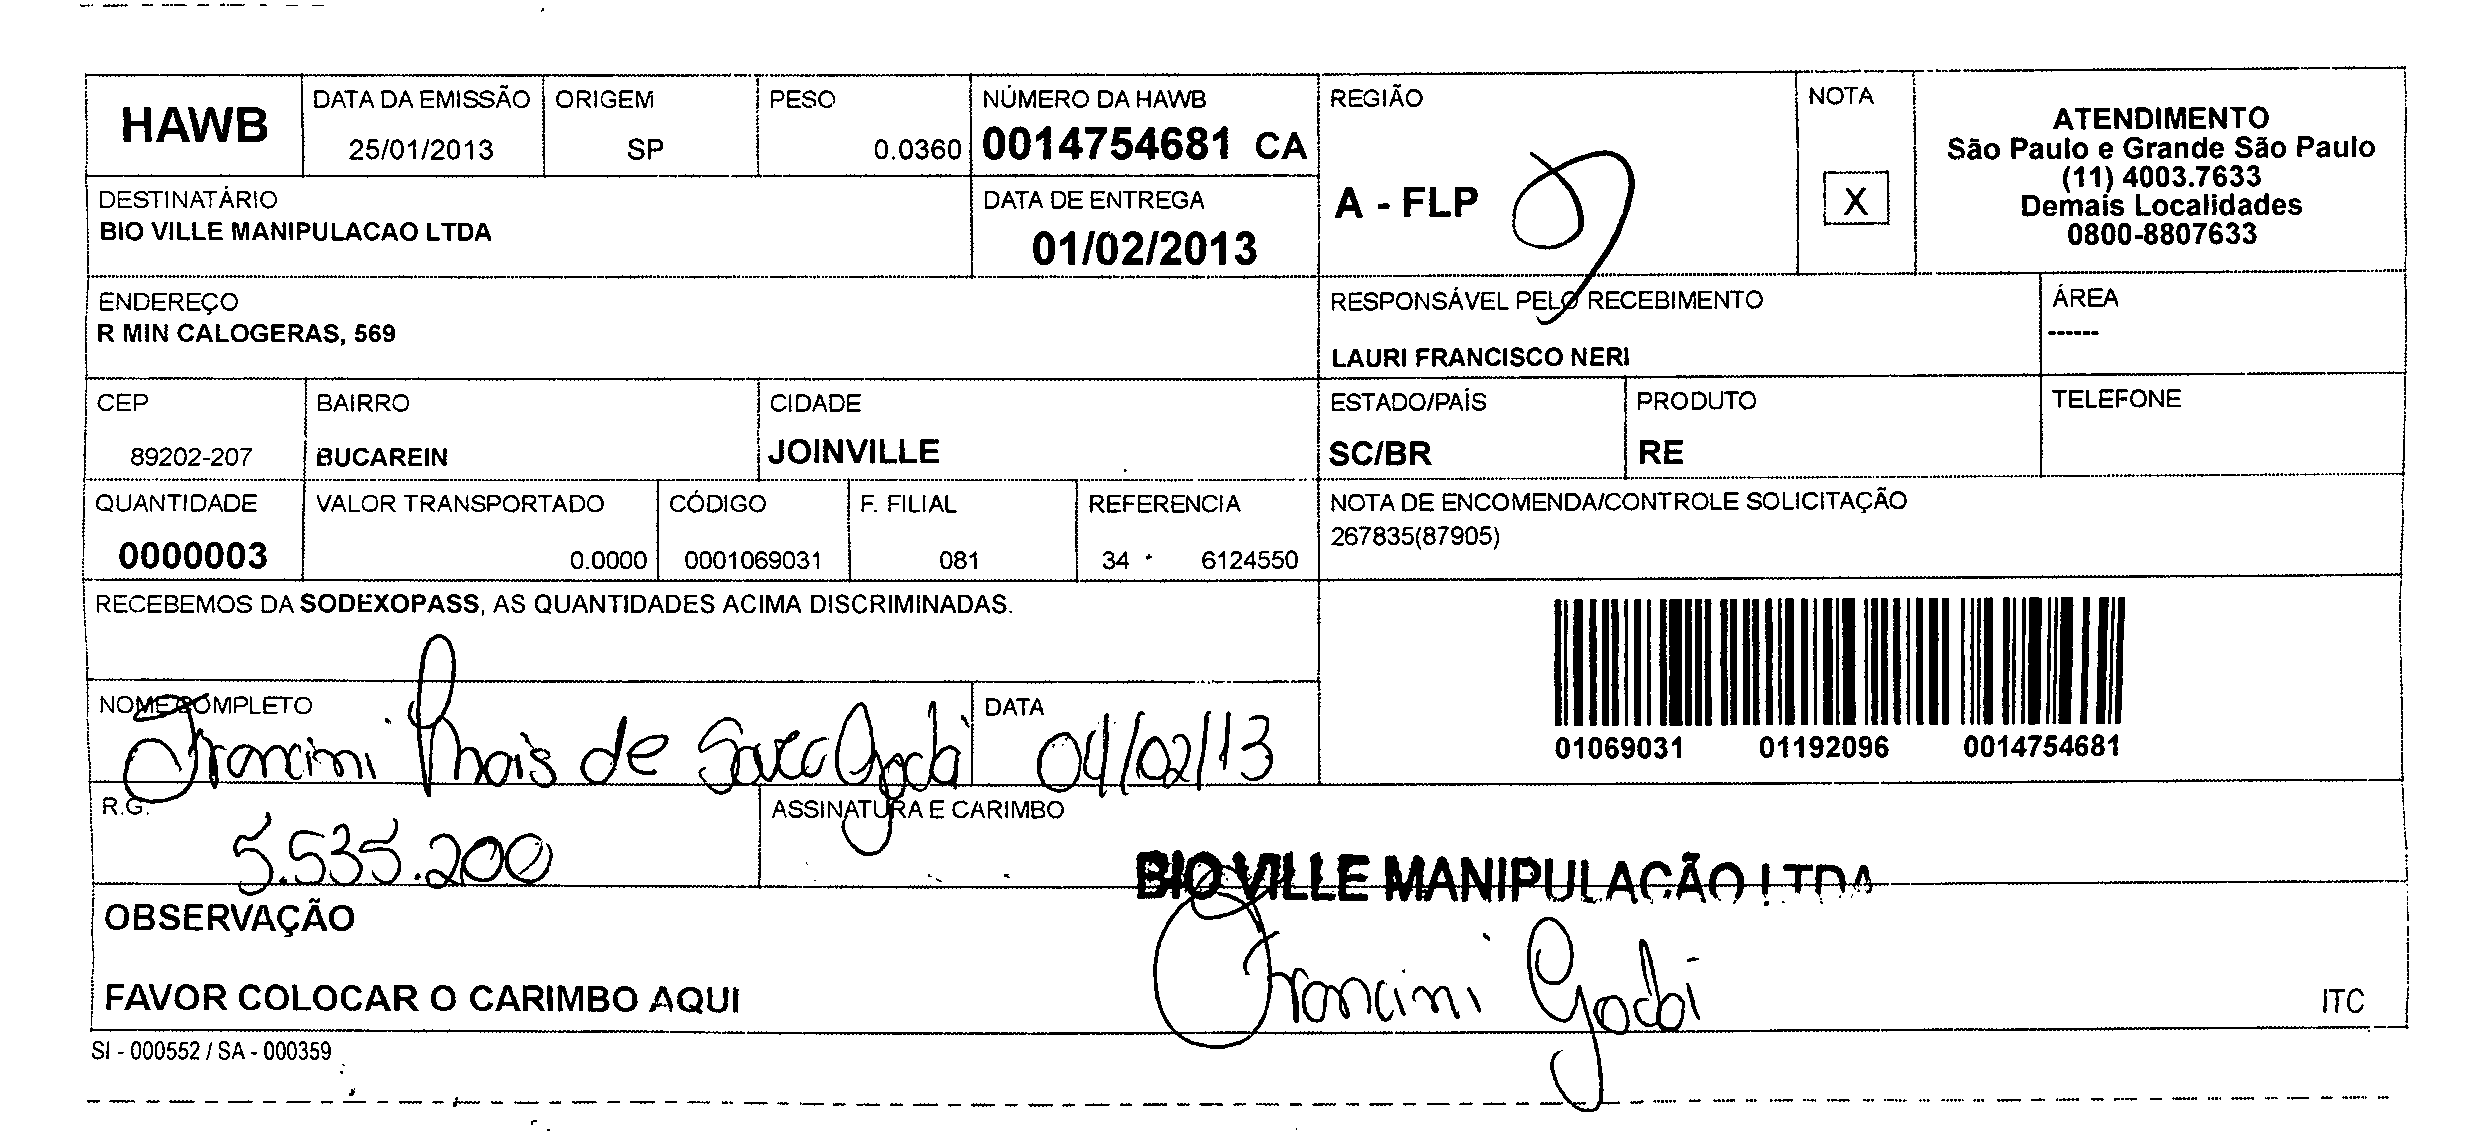 HAWB
DATA DA EMISSÃO
25/01/2013
ORIGEM
SP
PESO
0.0360
NÚMERO DA HAWB
0014754681 CA
REGIÃO
A - FLP
NOTA
X
ATENDIMENTO
São Paulo e Grande São Paulo
(11) 4003.7633
Demais Localidades
0800-8807633
DESTINATÁRIO
BIO VILLE MANIPULACAO LTDA
DATA DE ENTREGA
01/02/2013
ENDEREÇO
R MIN CALOGERAS, 569
RESPONSÁVEL PELO RECEBIMENTO
LAURI FRANCISCO NERI
ÁREA
------
CEP
89202-207
BAIRRO
BUCAREIN
CIDADE
JOINVILLE
ESTADO/PAÍS
SC/BR
PRODUTO
RE
TELEFONE
QUANTIDADE
0000003
VALOR TRANSPORTADO
0.0000
CÓDIGO
0001069031
F. FILIAL
081
REFERENCIA
34 * 6124550
NOTA DE ENCOMENDA/CONTROLE SOLICITAÇÃO
267835(87905)
RECEBEMOS DA SODEXOPASS, AS QUANTIDADES ACIMA DISCRIMINADAS.
01069031 01192096 0014754681
NOME COMPLETO
Francini Thais de Godoi
DATA
04/02/13
R.G.
5.535.200
ASSINATURA E CARIMBO
BIO VILLE MANIPULAÇÃO LTDA
Francini Godoi
OBSERVAÇÃO
FAVOR COLOCAR O CARIMBO AQUI
ITC
SI - 000552 / SA - 000359